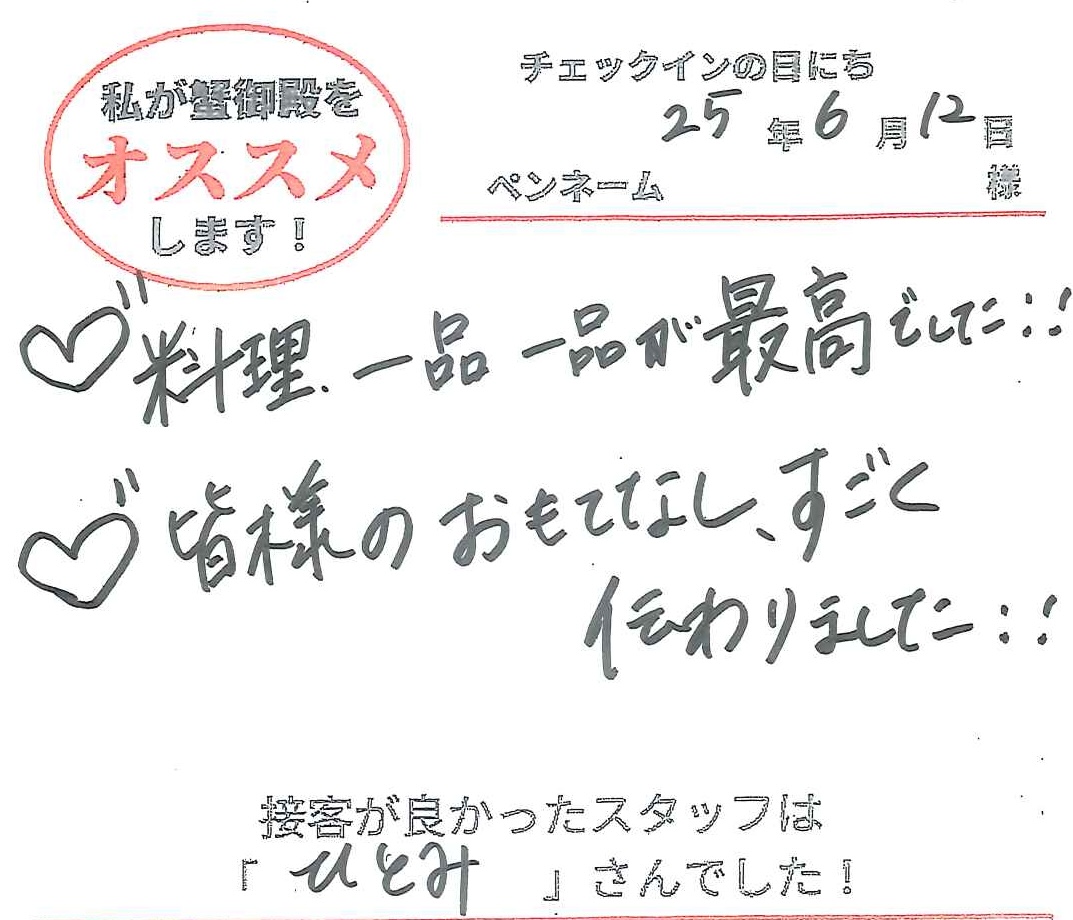 私が蟹御殿を
オススメ
します！
チェックインの日にち
25年6月12日
ペンネーム 様
♡料理、一品一品が最高でした！！
♡皆様のおもてなし、すごく
伝わりました！！
接客が良かったスタッフは
「ひとみ」さんでした！